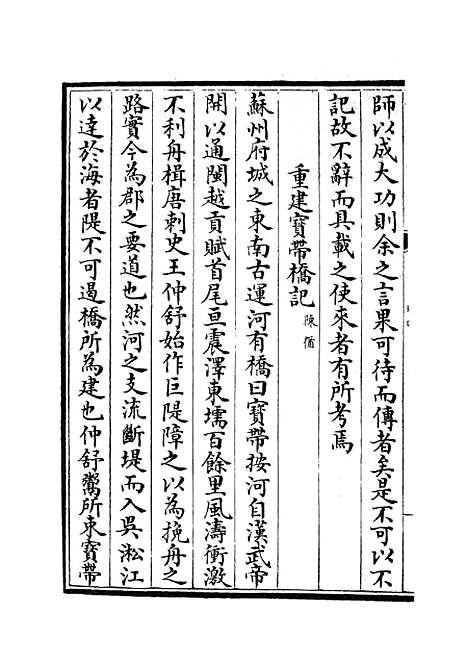 師以成大功則余之言果可待而傳者矣是不可以不
記故不辭而具載之使來者有所考焉
重建寶帶橋記 陳循
蘇州府城之東南古運河有橋曰寶帶按河自漢武帝
開以通閩越貢賦首尾亘震澤東壖百餘里風濤衝激
不利舟楫唐刺史王仲舒始作巨隄障之以為挽舟之
路實今為郡之要道也然河之支流斷堤而入吳淞江
以達於海者隄不可遏橋所為建也仲舒鬻所束寶帶